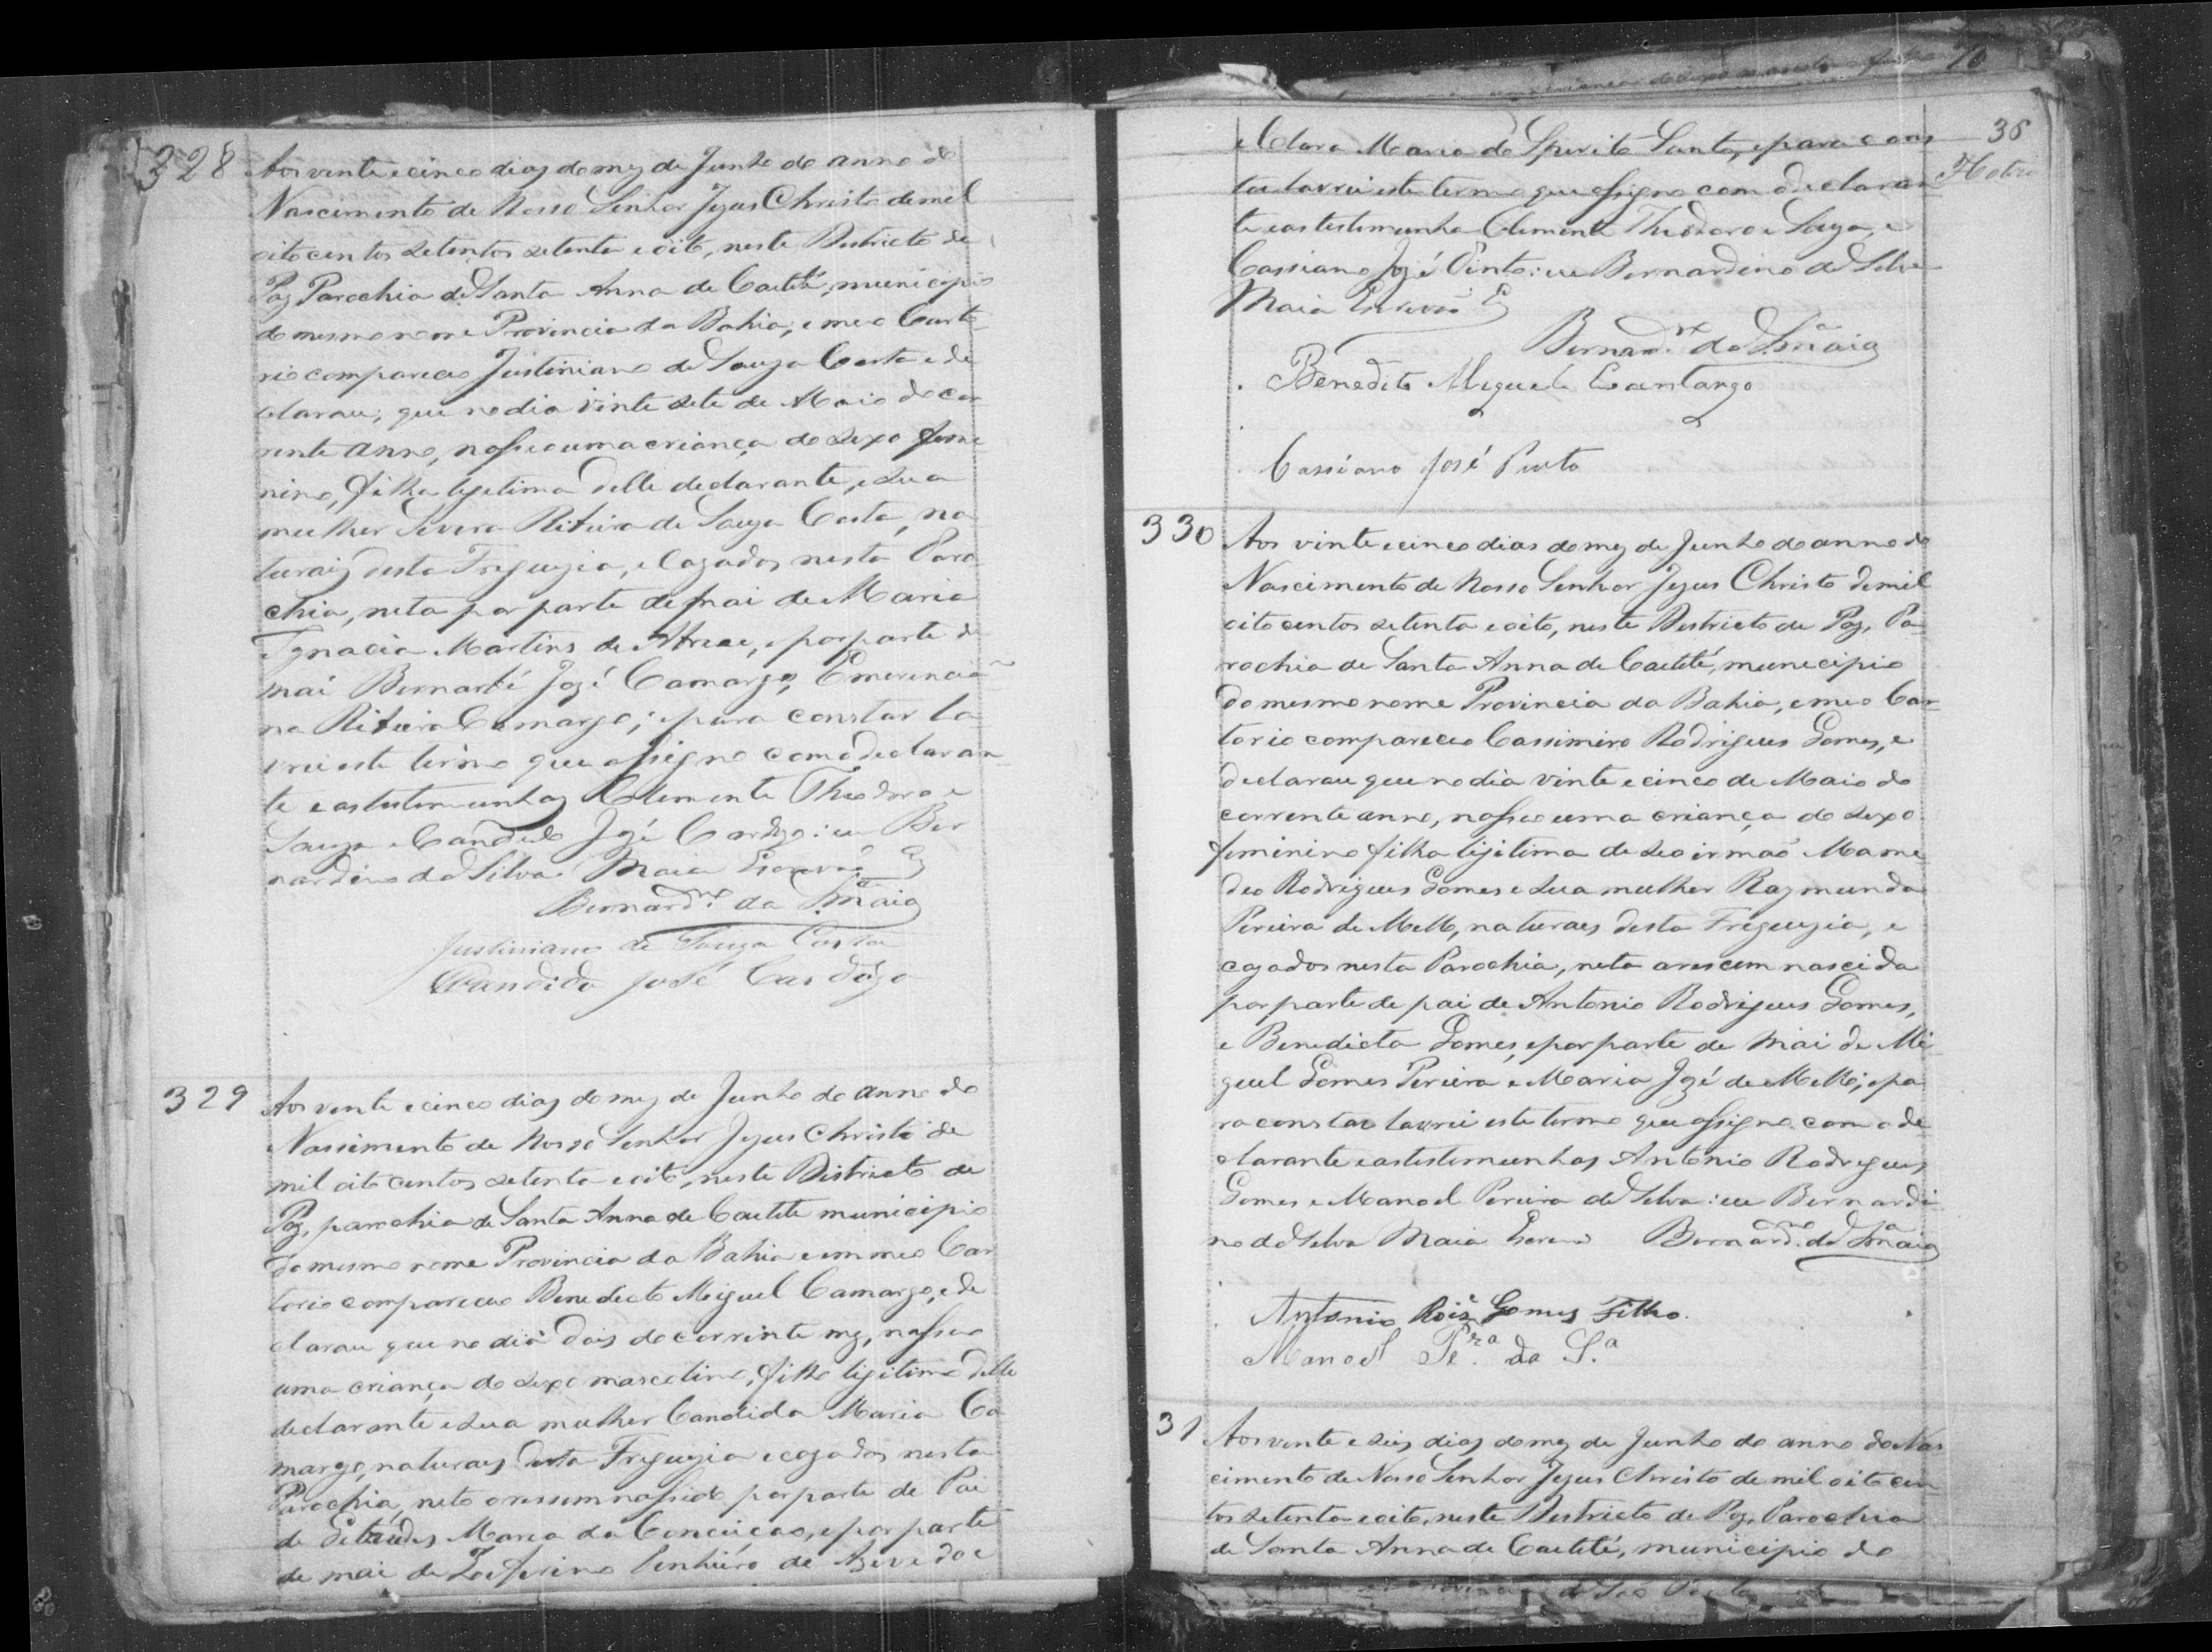 328
Aos vinte e cinco dias do mez de Junho do anno do
Nascimento de Nosso Senhor Jezus Christo de mil
oito centos setentos setenta e oito, neste Destricto de
Paz Parochia de Santa Anna de Caetité, municipio
do mesmo nome Provincia da Bahia, e meo Carto
rio compareceo Justiniano de Souza Costa e de
clarou, que no dia vinte sete de Maio do cor
rente anno, nasseo uma criança do sexo femi
nino, filha legetima delle declarante, e sua
mulher Severa Ritura de Souza Costa, na
turaiz desta Freguezia, e Cazados nesta Paro
chia, neta por parte de pai de Maria
Ignacia Martins de Abreu, e por parte de
mai Bernardé José Camargo, Emerencia
na Riteira Camargo; e para constar la
vrei este termo que assigno com o declaran
te e as testemunhas Clemente Theodoro e
Souza e Candido José Cardozo: eu Ber
nardino da Silva Maia Escrivaõ
Bernard.no da S.a Maia
Justiniano de Souza Costa
Candido José Cardôzo
329
Aos vente e cinco dias do mez de Junho do anno do
Nassimento de Nosso Senhor Jezus Christo de
mil oito centos setenta e oito, neste Districto de
Paz, parochia de Santa Anna de Caetité municipio
do mesmo nome Provincia da Bahia e em meo Car
torio compareceo Benedicto Miguel Camargo, e de
clarou que no dia dois do corrente mez, nasseo
uma criança do sexo mascolino, filho legitimo delle
declarante e sua mulher Candida Maria Ca
margo, naturaes desta Freguezia e cazados nesta
Parochia, neto o ressemnassido por parte de Pai
de Maria da Conceiçao, e por parte
de mai de Zeferino Pinheiro de Azevedo e
36
e Clara Maria do Spirito Santo, e para cons
tar lavrei este termo que assigno com declaran
te e as testemunha Clemente Theodoro e Souza, e
Cassiano José Pinto: eu Bernardino da Silva
Maia Escrivaõ
Bernard.no da S.a Maia
Benedito Miguel Camargo
Cassiano José Pinto
330
Aos vinte e cinco dias do mez de Junho do anno do
Nascimento de Nosso Senhor Jezus Christo de mil
oito centos setenta e oito, neste Destricto de Paz, Pa
rochia de Santa Anna de Caetité, municipio
do mesmo nome Provincia da Bahia, e meo Car
torio compareceo Cassimiro Rodrigues Gomes, e
declarou que no dia vinte e cinco de Maio do
corrente anno, nasseo uma criança do sexo
feminino filha ligitima de seo irmaõ Mame
deo Rodrigues Gomes e sua mulher Raymunda
Pereira de Mello, naturaes desta Freguezia, e
cazados nesta Parochia, neta a rescem nascida
por parte de pai de Antonio Rodrigues Gomes,
e Benedicta Gomes, e por parte de mai de Mi
guel Gomes Pereira e Maria José de Mello; e pa
ra constar lavrei este termo que assigno com o de
clarante e as testemunhas Antonio Rodrigues
Gomes e Manoel Pereira da Silva: eu Bernardi
no da Silva Maia Escrivaõ Bernard.no da S.a Maia
Antonio Roiz Gomes Filho.
Manoel Per.a da S.a
31
Aos vente e seis dias do mez de Junho do anno do Nas
cimento de Nosso Senhor Jezus Christo de mil oito cen
tos setenta e oito, neste Destricto de Paz, Parochia
de Santa Anna de Caetité, municipio do